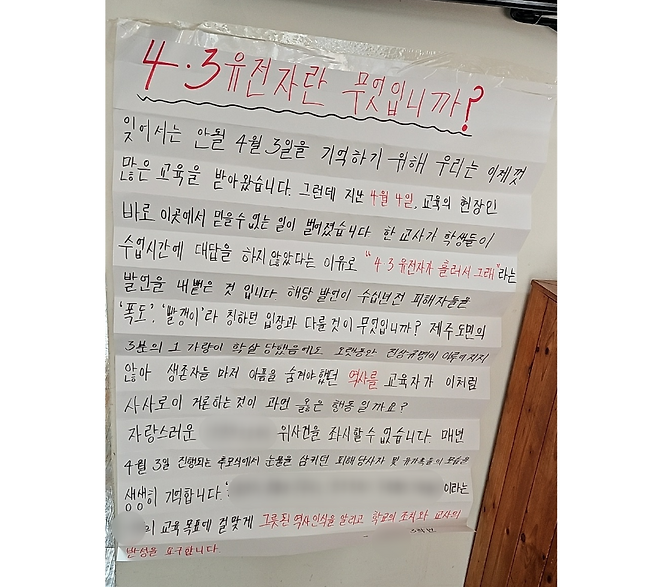 4·3 유전자란 무엇입니까?
잊어서는 안될 4월 3일을 기억하기 위해 우리는 이제껏
많은 교육을 받아왔습니다. 그런데 지난 4월 4일, 교육의 현장인
바로 이곳에서 믿을 수 없는 일이 벌어졌습니다 한 교사가 학생들이
수업시간에 대답을 하지 않았다는 이유로 "4·3 유전자가 흘러서 그래"라는
발언을 내뱉은 것 입니다. 해당 발언이 수십년전 피해자들을
'폭도', '빨갱이'라 칭하던 입장과 다를 것이 무엇입니까? 제주도민의
3분의 1 가량이 학살 당했음에도 오랫동안 진상규명이 이루어지지
않아 생존자들 마저 아픔을 숨겨야 했던 역사를 교육자가 이처럼
사사로이 거론하는 것이 과연 옳은 행동 일까요?
자랑스러운 위 사건을 좌시할 수 없습니다. 매년
4월 3일 진행되는 추모식에서 눈물을 삼키던 피해 당사자 및 유가족들의 모습을
생생히 기억합니다. ' 이라는
의 교육 목표에 걸맞게 그릇된 역사인식을 알리고 학교의 조치와 교사의
반성을 요구합니다